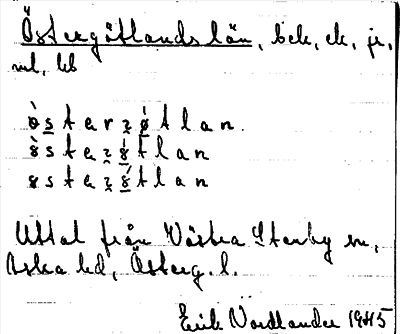 Östergötlands län, bek, ek, jr,
ml, hb
ò̤sterz̤ǿtlan.
ò̤stez̤ǿtlan
østez̤ǿtlan
Uttal från Västra Stenby sn,
Aska hd, Österg. l.
Erik Nordlander 1945